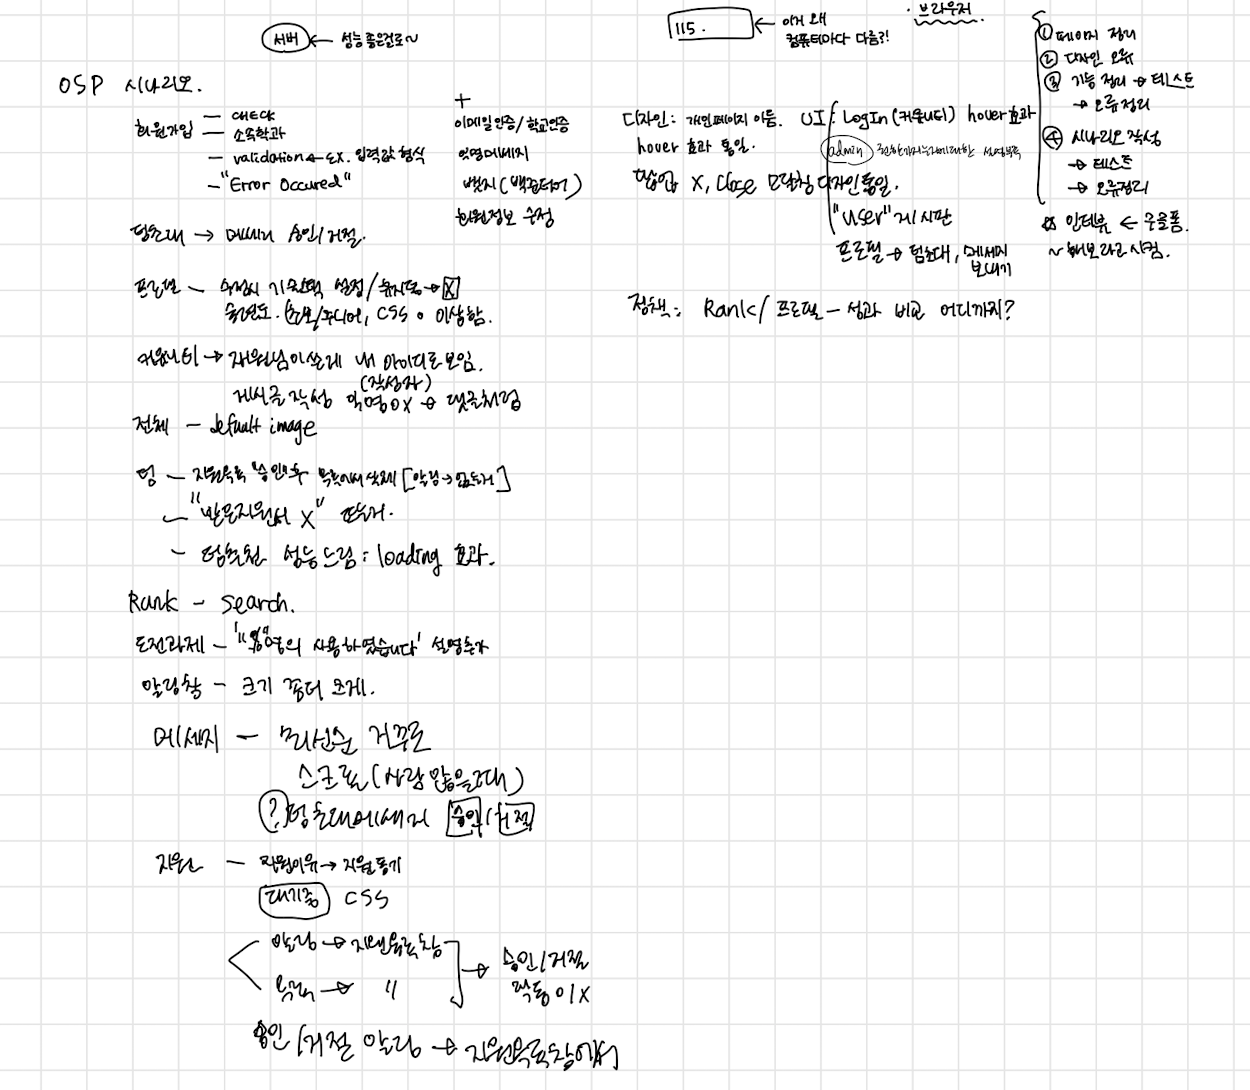 서버 ← 성능 좋은걸로~
115. ← 이거 왜 컴퓨터마다 다름?!
· 브라우저
① 페이지 정리
② 디자인 오류
③ 기능 정리 → 테스트
→ 오류정리
④ 시나리오 작성
→ 테스트
→ 오류정리
☆ 인터뷰 ← 구글폼.
~ 해보라고 시킴.
OSP 시나리오.
회원가입 — CHECK
— 소속학과
— validation ← EX. 입력값 형식
— "Error Occured"
+
이메일인증/학교인증
익명메세지
뱃지(백꾸러미)
회원정보 수정
디자인: 개인페이지 이동.
hover 효과 통일.
팝업 X, Close 모달창 디자인통일.
UI: LogIn(커뮤니티) hover효과
admin
"User" 게시판
프로필 → 팀초대, 메세지 보내기
정책: Rank/프로필 — 성과 비교 어디까지?
팀초대 → 메세지 승인/거절.
프로필 — 수정시 기술스택 설정/유지됨 → X
숙련도. 초보/주니어, CSS 이상함.
커뮤니티 → 재원님이쓴게 내 아이디로보임.
(작성자)
게시글 작성 익명 O X → 댓글처럼
전체 — default image
팀 — 지원목록 승인후 목록에서 삭제 [알림→안뜨거]
— "받은지원서 X" 뜨는거.
— 팀추천 성능느림 : loading 효과.
Rank — Search.
도전과제 — 사용하였습니다' 설명추가
알림창 — 크기 좀더 크게.
메세지 — 최신순 거꾸로
스크롤(사람 많을때)
? 팀초대메세지 승인/거절
지원 — 지원이유 → 지원동기
대기중 CSS
알림 → 지원목록창
목록 → "
→ 승인/거절 작동이X
승인/거절 알림 → 지원목록창에서